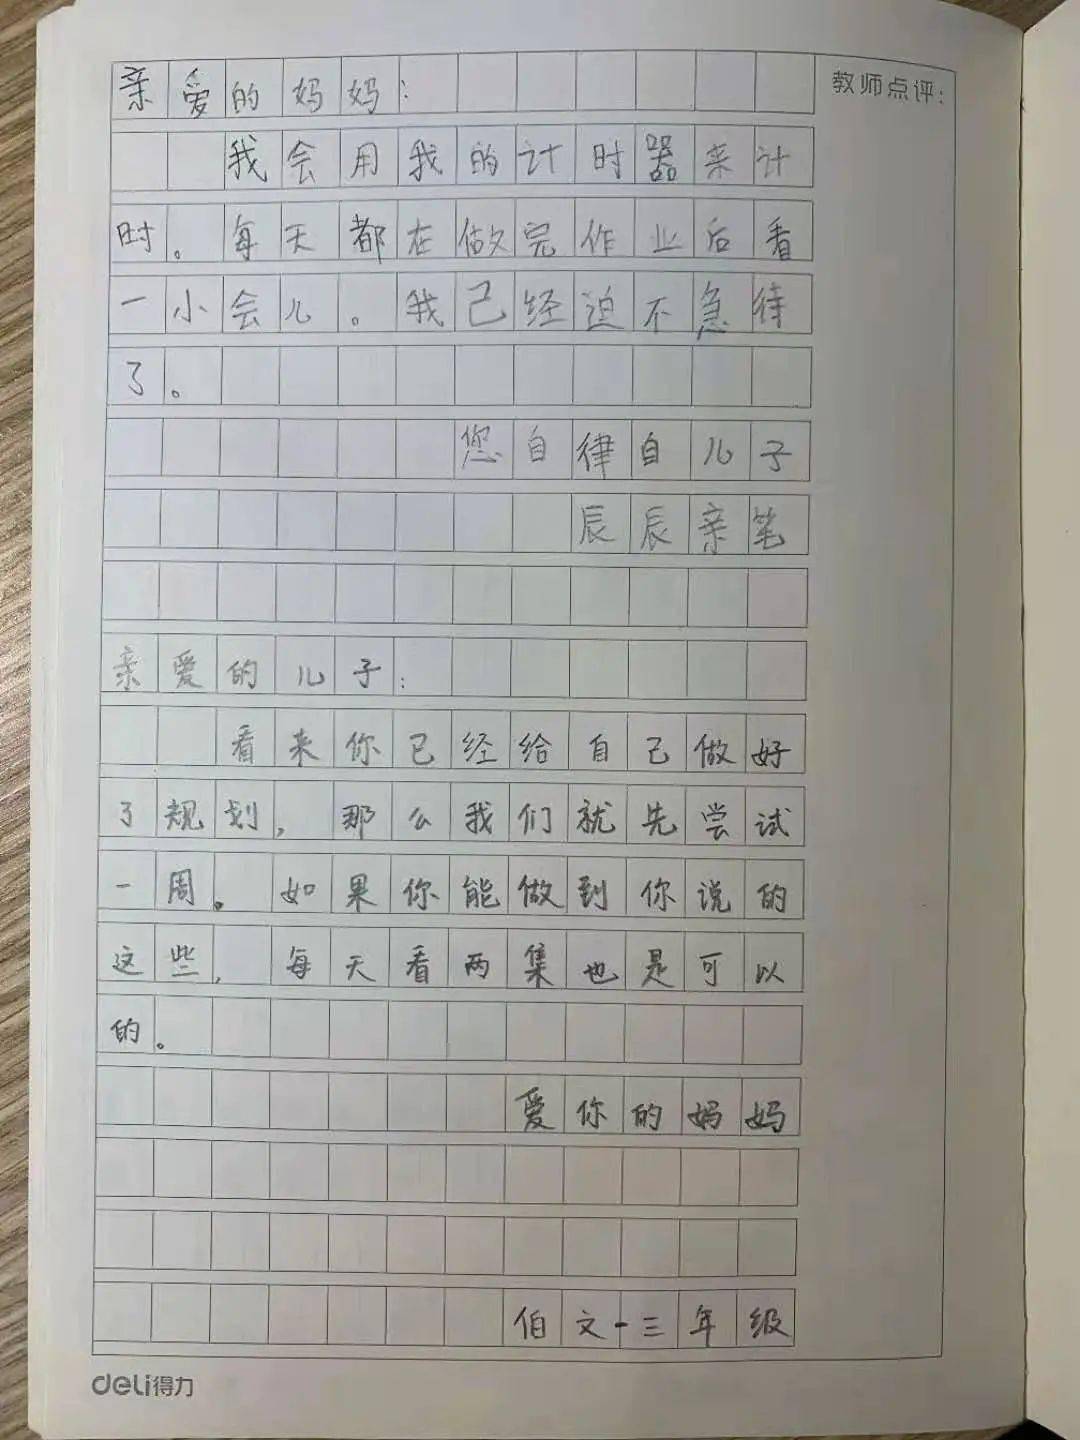 亲爱的妈妈：
教师点评：
我会用我的计时器来计
时。每天都在做完作业后看
一小会儿。我已经迫不急待
了。
您自律自儿子
辰辰亲笔
亲爱的儿子：
看来你已经给自己做好
了规划，那么我们就先尝试
一周。如果你能做到你说的
这些，每天看两集也是可以
的。
爱你的妈妈
伯文-三年级
deli得力